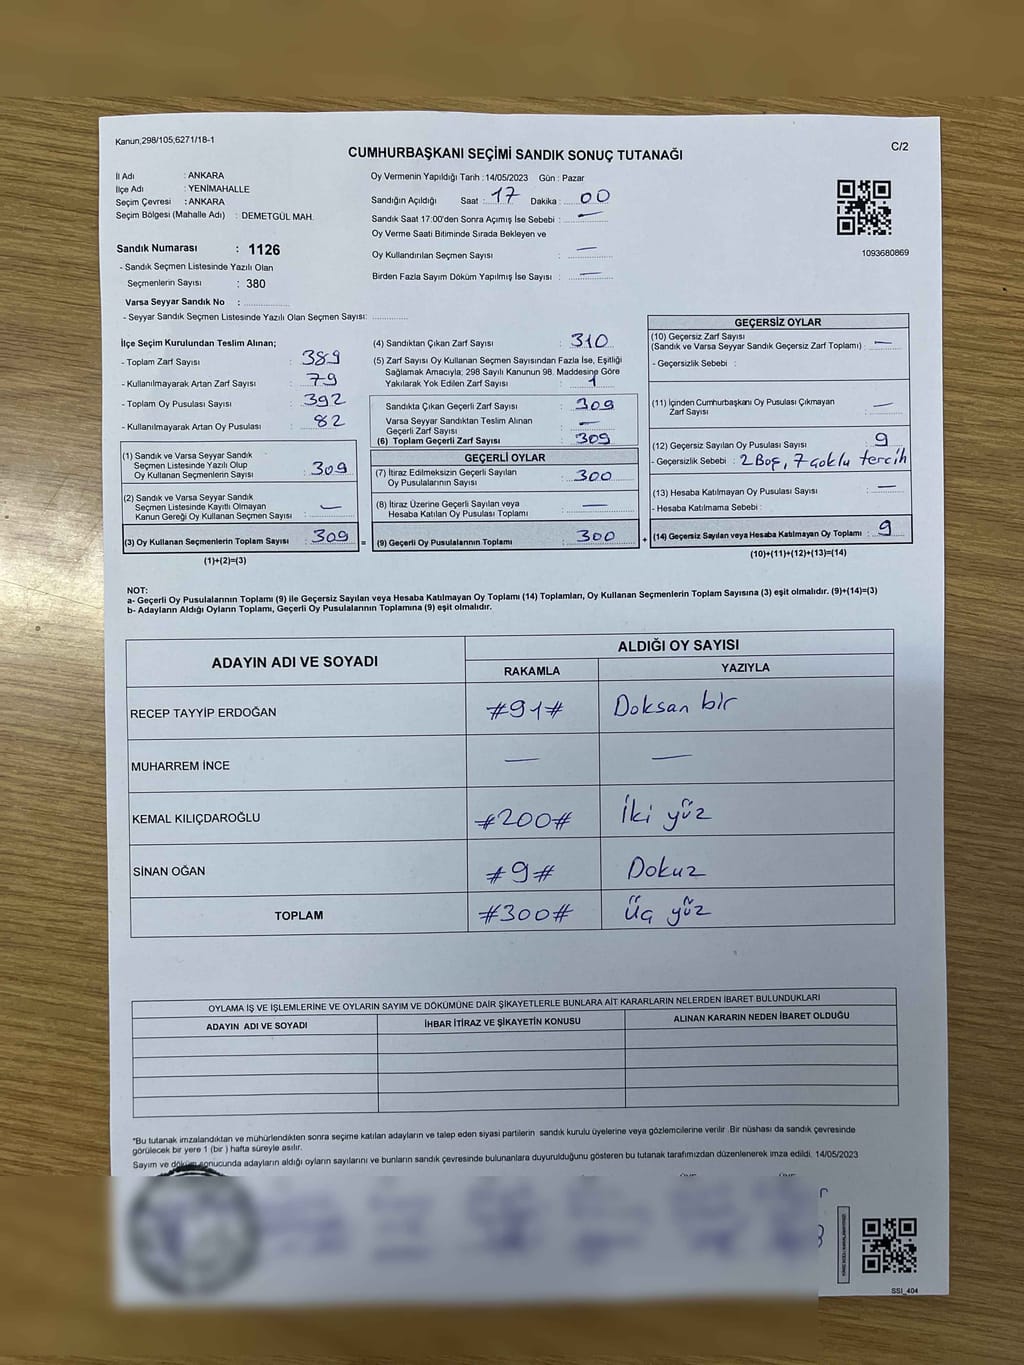 Kanun,298/105,6271/18-1
C/2
CUMHURBAŞKANI SEÇİMİ SANDIK SONUÇ TUTANAĞI
İl Adı : ANKARA
İlçe Adı : YENİMAHALLE
Seçim Çevresi : ANKARA
Seçim Bölgesi (Mahalle Adı) : DEMETGÜL MAH.
Sandık Numarası : 1126
- Sandık Seçmen Listesinde Yazılı Olan
Seçmenlerin Sayısı : 380
Varsa Seyyar Sandık No :
- Seyyar Sandık Seçmen Listesinde Yazılı Olan Seçmen Sayısı:
Oy Vermenin Yapıldığı Tarih :14/05/2023 Gün : Pazar
Sandığın Açıldığı Saat : 17 Dakika : 00
Sandık Saat 17:00'den Sonra Açımış İse Sebebi : —
Oy Verme Saati Bitiminde Sırada Bekleyen ve
Oy Kullandırılan Seçmen Sayısı : —
Birden Fazla Sayım Döküm Yapılmış İse Sayısı : —
1093680869
İlçe Seçim Kurulundan Teslim Alınan;
- Toplam Zarf Sayısı : 389
- Kullanılmayarak Artan Zarf Sayısı : 79
- Toplam Oy Pusulası Sayısı : 392
- Kullanılmayarak Artan Oy Pusulası : 82
(1) Sandık ve Varsa Seyyar Sandık
Seçmen Listesinde Yazılı Olup
Oy Kullanan Seçmenlerin Sayısı : 309
(2) Sandık ve Varsa Seyyar Sandık
Seçmen Listesinde Kayıtlı Olmayan
Kanun Gereği Oy Kullanan Seçmen Sayısı : —
(3) Oy Kullanan Seçmenlerin Toplam Sayısı : 309 =
(1)+(2)=(3)
(4) Sandıktan Çıkan Zarf Sayısı : 310
(5) Zarf Sayısı Oy Kullanan Seçmen Sayısından Fazla İse, Eşitliği
Sağlamak Amacıyla; 298 Sayılı Kanunun 98. Maddesine Göre
Yakılarak Yok Edilen Zarf Sayısı : 1
Sandıkta Çıkan Geçerli Zarf Sayısı : 309
Varsa Seyyar Sandıktan Teslim Alınan
Geçerli Zarf Sayısı : —
(6) Toplam Geçerli Zarf Sayısı : 309
GEÇERLİ OYLAR
(7) İtiraz Edilmeksizin Geçerli Sayılan
Oy Pusulalarının Sayısı : 300
(8) İtiraz Üzerine Geçerli Sayılan veya
Hesaba Katılan Oy Pusulası Toplamı : —
(9) Geçerli Oy Pusulalarının Toplamı : 300 +
GEÇERSİZ OYLAR
(10) Geçersiz Zarf Sayısı
(Sandık ve Varsa Seyyar Sandık Geçersiz Zarf Toplamı) : —
- Geçersizlik Sebebi :
(11) İçinden Cumhurbaşkanı Oy Pusulası Çıkmayan
Zarf Sayısı : —
(12) Geçersiz Sayılan Oy Pusulası Sayısı : 9
- Geçersizlik Sebebi : 2 Boş, 7 çoklu tercih
(13) Hesaba Katılmayan Oy Pusulası Sayısı : —
- Hesaba Katılmama Sebebi :
(14) Geçersiz Sayılan veya Hesaba Katılmayan Oy Toplamı : 9
(10)+(11)+(12)+(13)=(14)
NOT:
a- Geçerli Oy Pusulalarının Toplamı (9) ile Geçersiz Sayılan veya Hesaba Katılmayan Oy Toplamı (14) Toplamları, Oy Kullanan Seçmenlerin Toplam Sayısına (3) eşit olmalıdır. (9)+(14)=(3)
b- Adayların Aldığı Oyların Toplamı, Geçerli Oy Pusulalarının Toplamına (9) eşit olmalıdır.
ADAYIN ADI VE SOYADI
ALDIĞI OY SAYISI
RAKAMLA YAZIYLA
RECEP TAYYİP ERDOĞAN #91# Doksan bir
MUHARREM İNCE — —
KEMAL KILIÇDAROĞLU #200# İki yüz
SİNAN OĞAN #9# Dokuz
TOPLAM #300# Üç yüz
OYLAMA İŞ VE İŞLEMLERİNE VE OYLARIN SAYIM VE DÖKÜMÜNE DAİR ŞİKAYETLERLE BUNLARA AİT KARARLARIN NELERDEN İBARET BULUNDUKLARI
ADAYIN ADI VE SOYADI İHBAR İTİRAZ VE ŞİKAYETİN KONUSU ALINAN KARARIN NEDEN İBARET OLDUĞU
*Bu tutanak imzalandıktan ve mühürlendikten sonra seçime katılan adayların ve talep eden siyasi partilerin sandık kurulu üyelerine veya gözlemcilerine verilir .Bir nüshası da sandık çevresinde
görülecek bir yere 1 (bir ) hafta süreyle asılır.
Sayım ve döküm sonucunda adayların aldığı oyların sayılarını ve bunların sandık çevresinde bulunanlara duyurulduğunu gösteren bu tutanak tarafımızdan düzenlenerek imza edildi. 14/05/2023
SSI_404